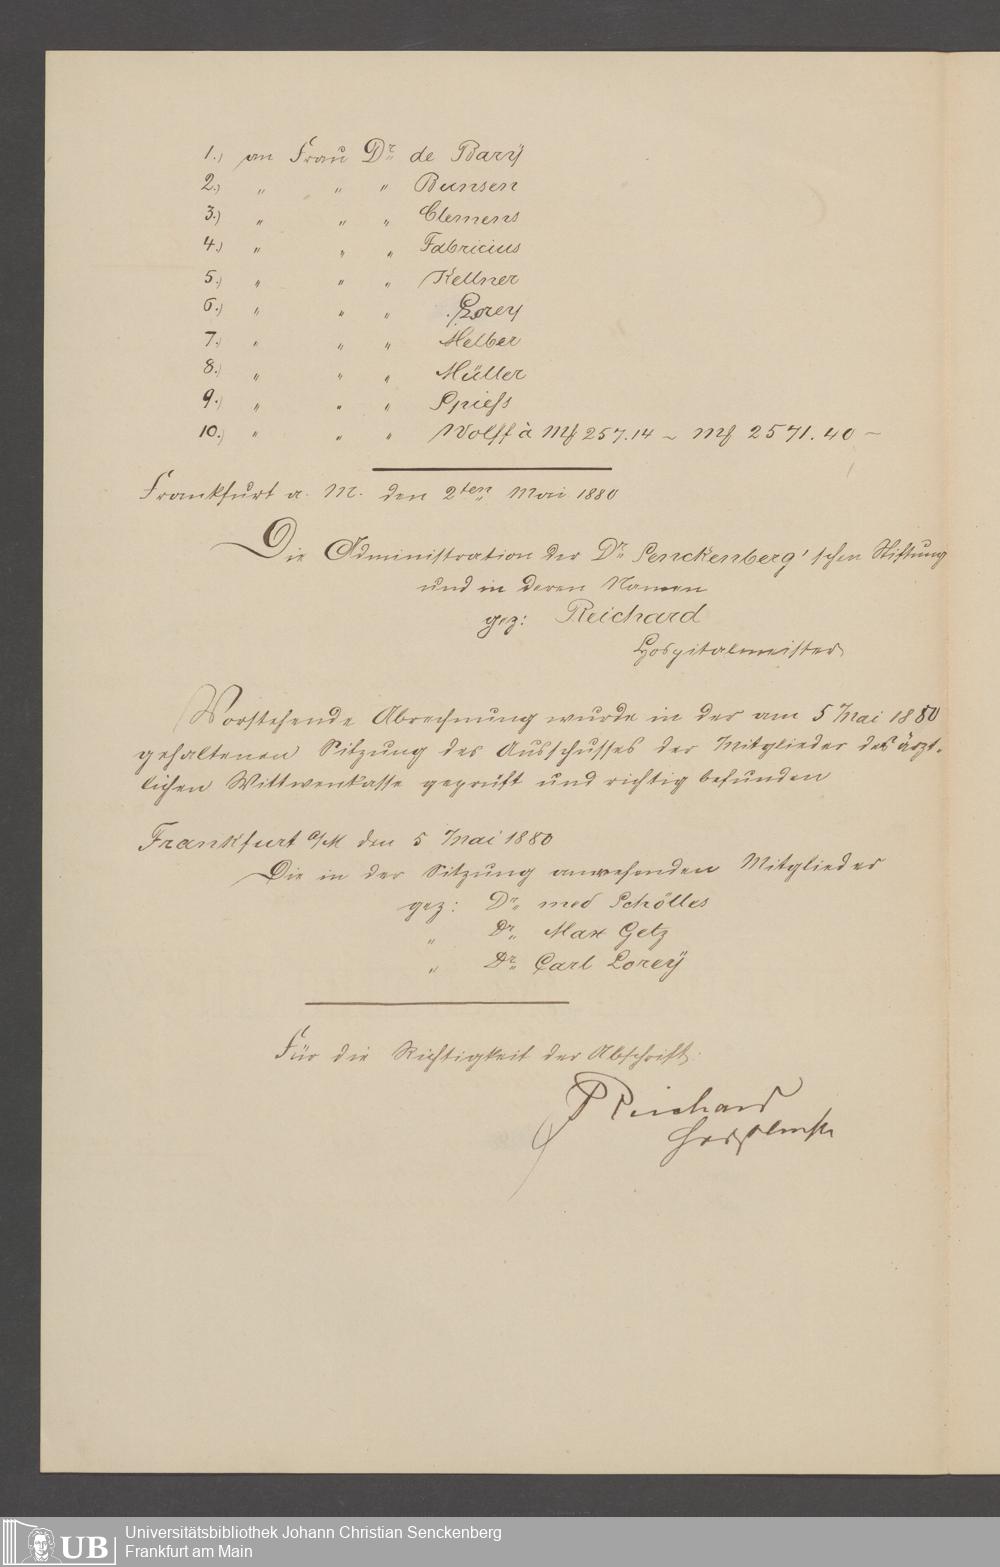 1.) an Frau Dr. de Bary
2.) " " " Bunsen
3.) " " " Clemens
4.) " " " Fabricius
5.) " " " Kellner
6.) " " " Lorey
7.) " " " Melber
8.) " " " Müller
9.) " " " Spiess
10.) " " " Wolff à Mk 257.14 ~ Mk 2571.40 –
Frankfurt a. M. den 2ten Mai 1880
Die Administration der Dr. Senckenberg'schen Stiftung
und in deren Namen
gez: Reichard
Hospitalmeister
Vorstehende Abrechnung wurde in der am 5 Mai 1880
gehaltenen Sitzung des Ausschusses der Mitglieder des ärzt-
lichen Wittwenkasse geprüft und richtig befunden
Frankfurt a/M den 5 Mai 1880
Die in der Sitzung anwesenden Mitglieder
gez: Dr. med Schölles
" Dr. Max Getz
" Dr. Carl Lorey
Für die Richtigkeit der Abschrift.
Reichard
Hospitalmstr
UB
Universitätsbibliothek Johann Christian Senckenberg
Frankfurt am Main